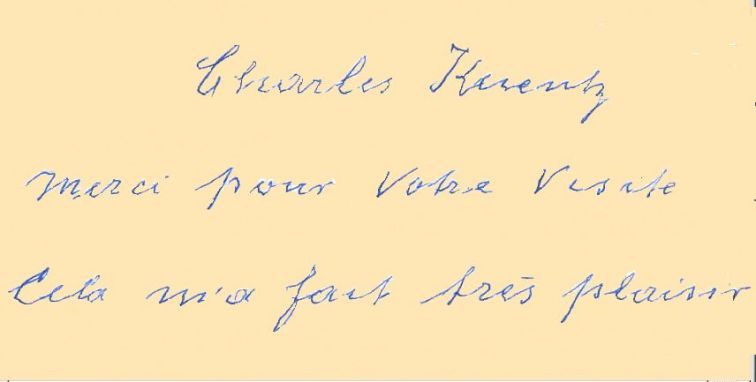 Charles Kuentz
Merci pour Votre Visite
Cela m'a fait très plaisir